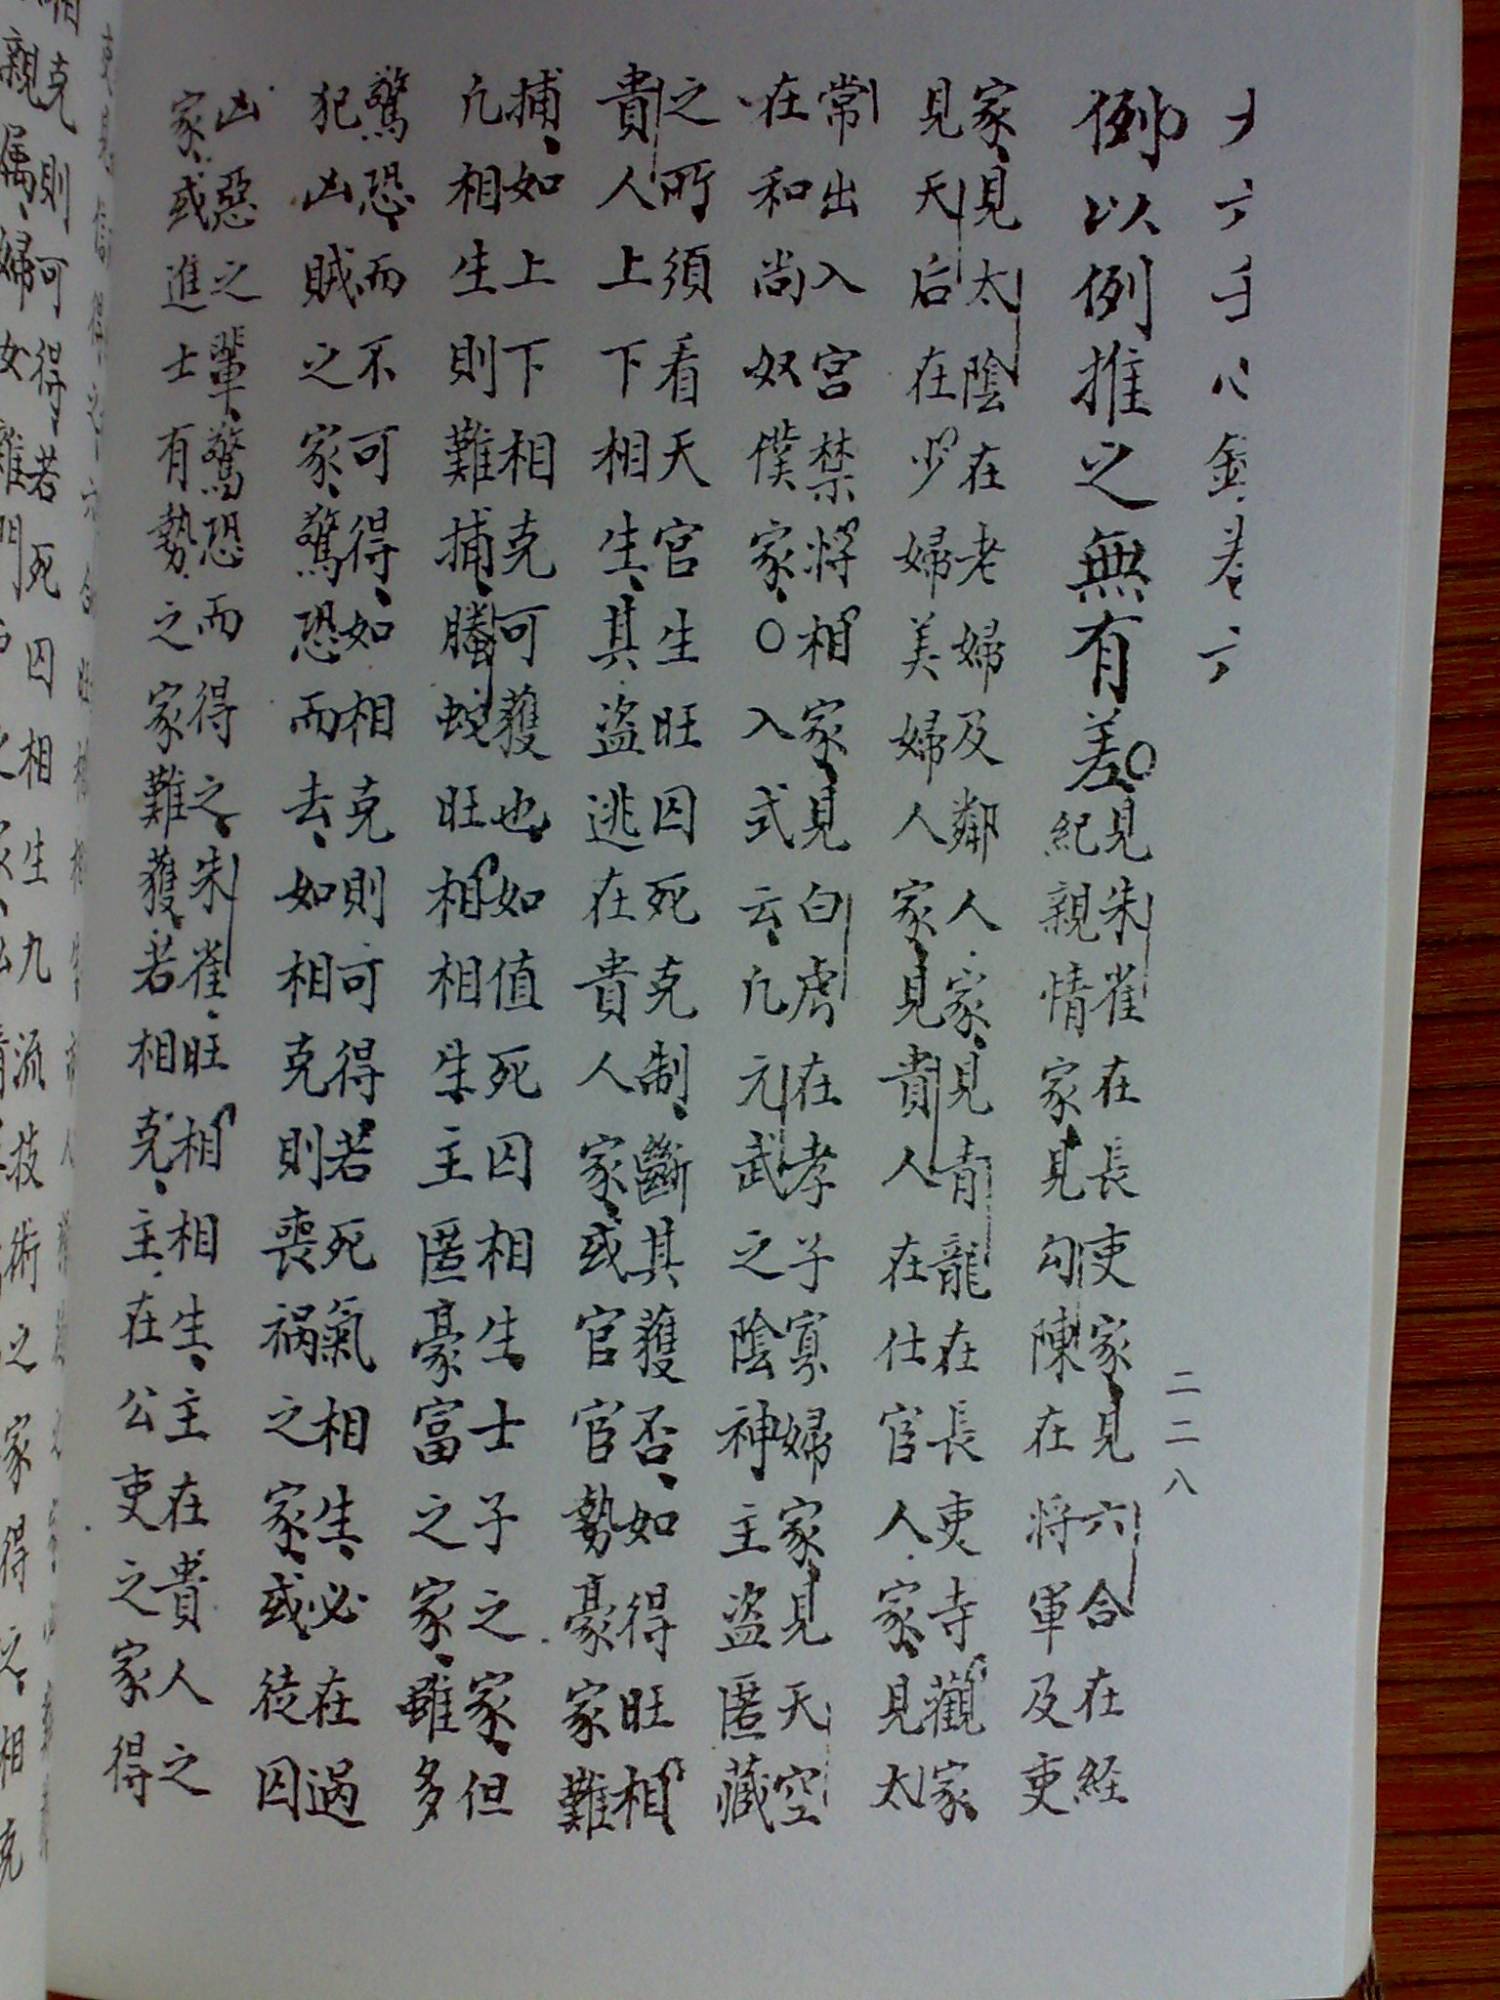 例以例推之無有差○
見朱雀在長吏家、見六合在経
紀親情家、見勾陳在将軍及吏
家、見太陰在老婦及鄰人家、見青龍在長吏寺觀家
見天后在少婦美婦人家、見貴人在仕官人家、見太
常出入宮禁將相家、見白虎在孝子寡婦家、見天空
在和尚奴僕家、○入式云、凡元武之陰神主盜匿藏
之所須看天官生旺囚死克制、斷其獲否、如得旺相
貴人上下相生、其盜逃在貴人家、或官宦勢豪家難
捕、如上下相克可獲也、如值死囚相生、士子之家、但
凡相生則難捕、螣蛇旺相相生、主匿豪富之家、雖多
驚恐、而不可得、如相克則可得、若死氣相生、必在過
犯凶賊之家、驚恐而去、如相克則喪禍之家、或徒囚
凶惡之輩、驚恐而得之、朱雀旺相相生、主在貴人之
家、或進士有勢之家難獲、若相克、主在公吏之家得
二二八
克則可得若死囚相生九流技術之家得之相克